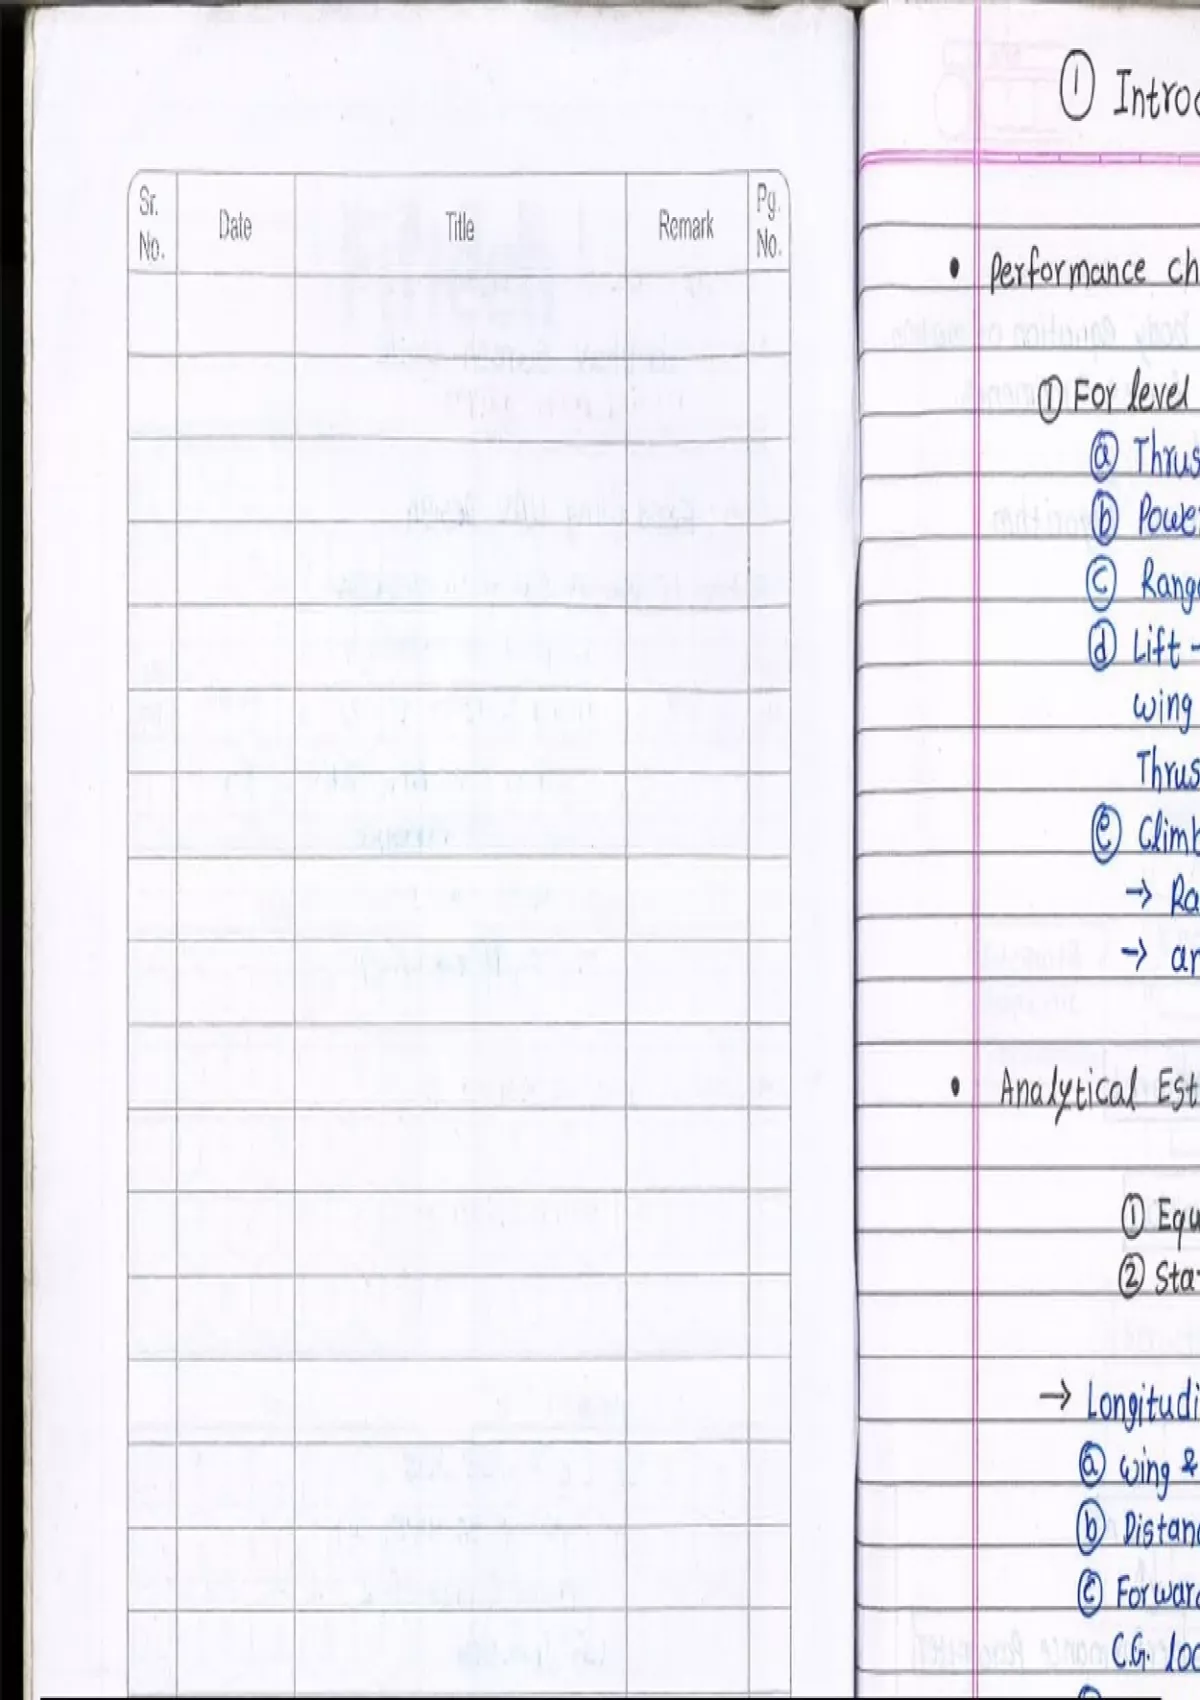 Sr. No.
Date
Title
Remark
Pg. No.
① Introd
• Performance ch
① For level
ⓐ Thrus
ⓑ Power
ⓒ Range
ⓓ Lift -
wing
Thrus
ⓔ Climb
→ Ra
→ an
• Analytical Est
① Equ
② Sta
→ Longitudi
ⓐ wing &
ⓑ Distanc
ⓒ Forward
C.G. loc